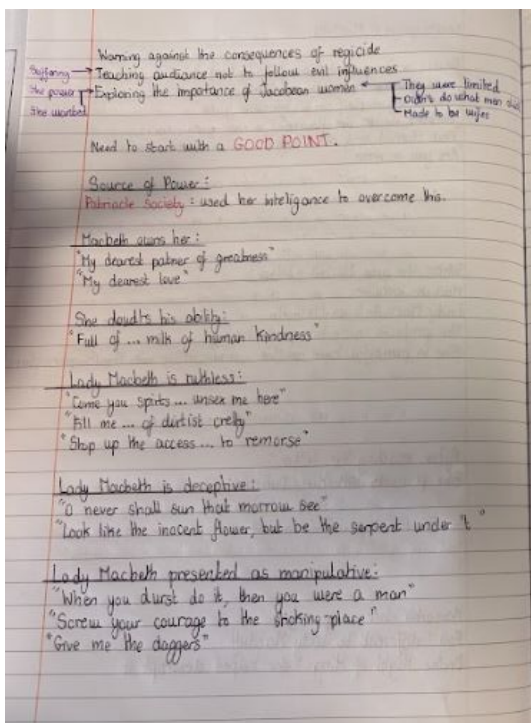 Warning against the consequences of regicide
Suffering → Teaching audience not to follow evil influences
She power → Exploring the importance of Jacobean women ← They were limited
She wanted
do what men
Made to be wifes
Need to start with a GOOD POINT.
Source of Power:
Patriacle Society: used her inteligance to overcome this.
Macbeth owns her:
"My dearest patner of greatness"
"My dearest love"
She doubts his ability:
"Full of ... milk of human kindness"
Lady Macbeth is ruthless:
"Come you spirts ... unsex me here"
"Fill me ... of dirtist crelty"
"Stop up the access ... to remorse"
Lady Macbeth is deceptive:
"O never shall sun that morrow see"
"Look like the inocent flower, but be the serpent under 't"
Lady Macbeth presented as manipulative:
"When you durst do it, then you were a man"
"Screw your courage to the sticking-place"
"Give me the daggers"